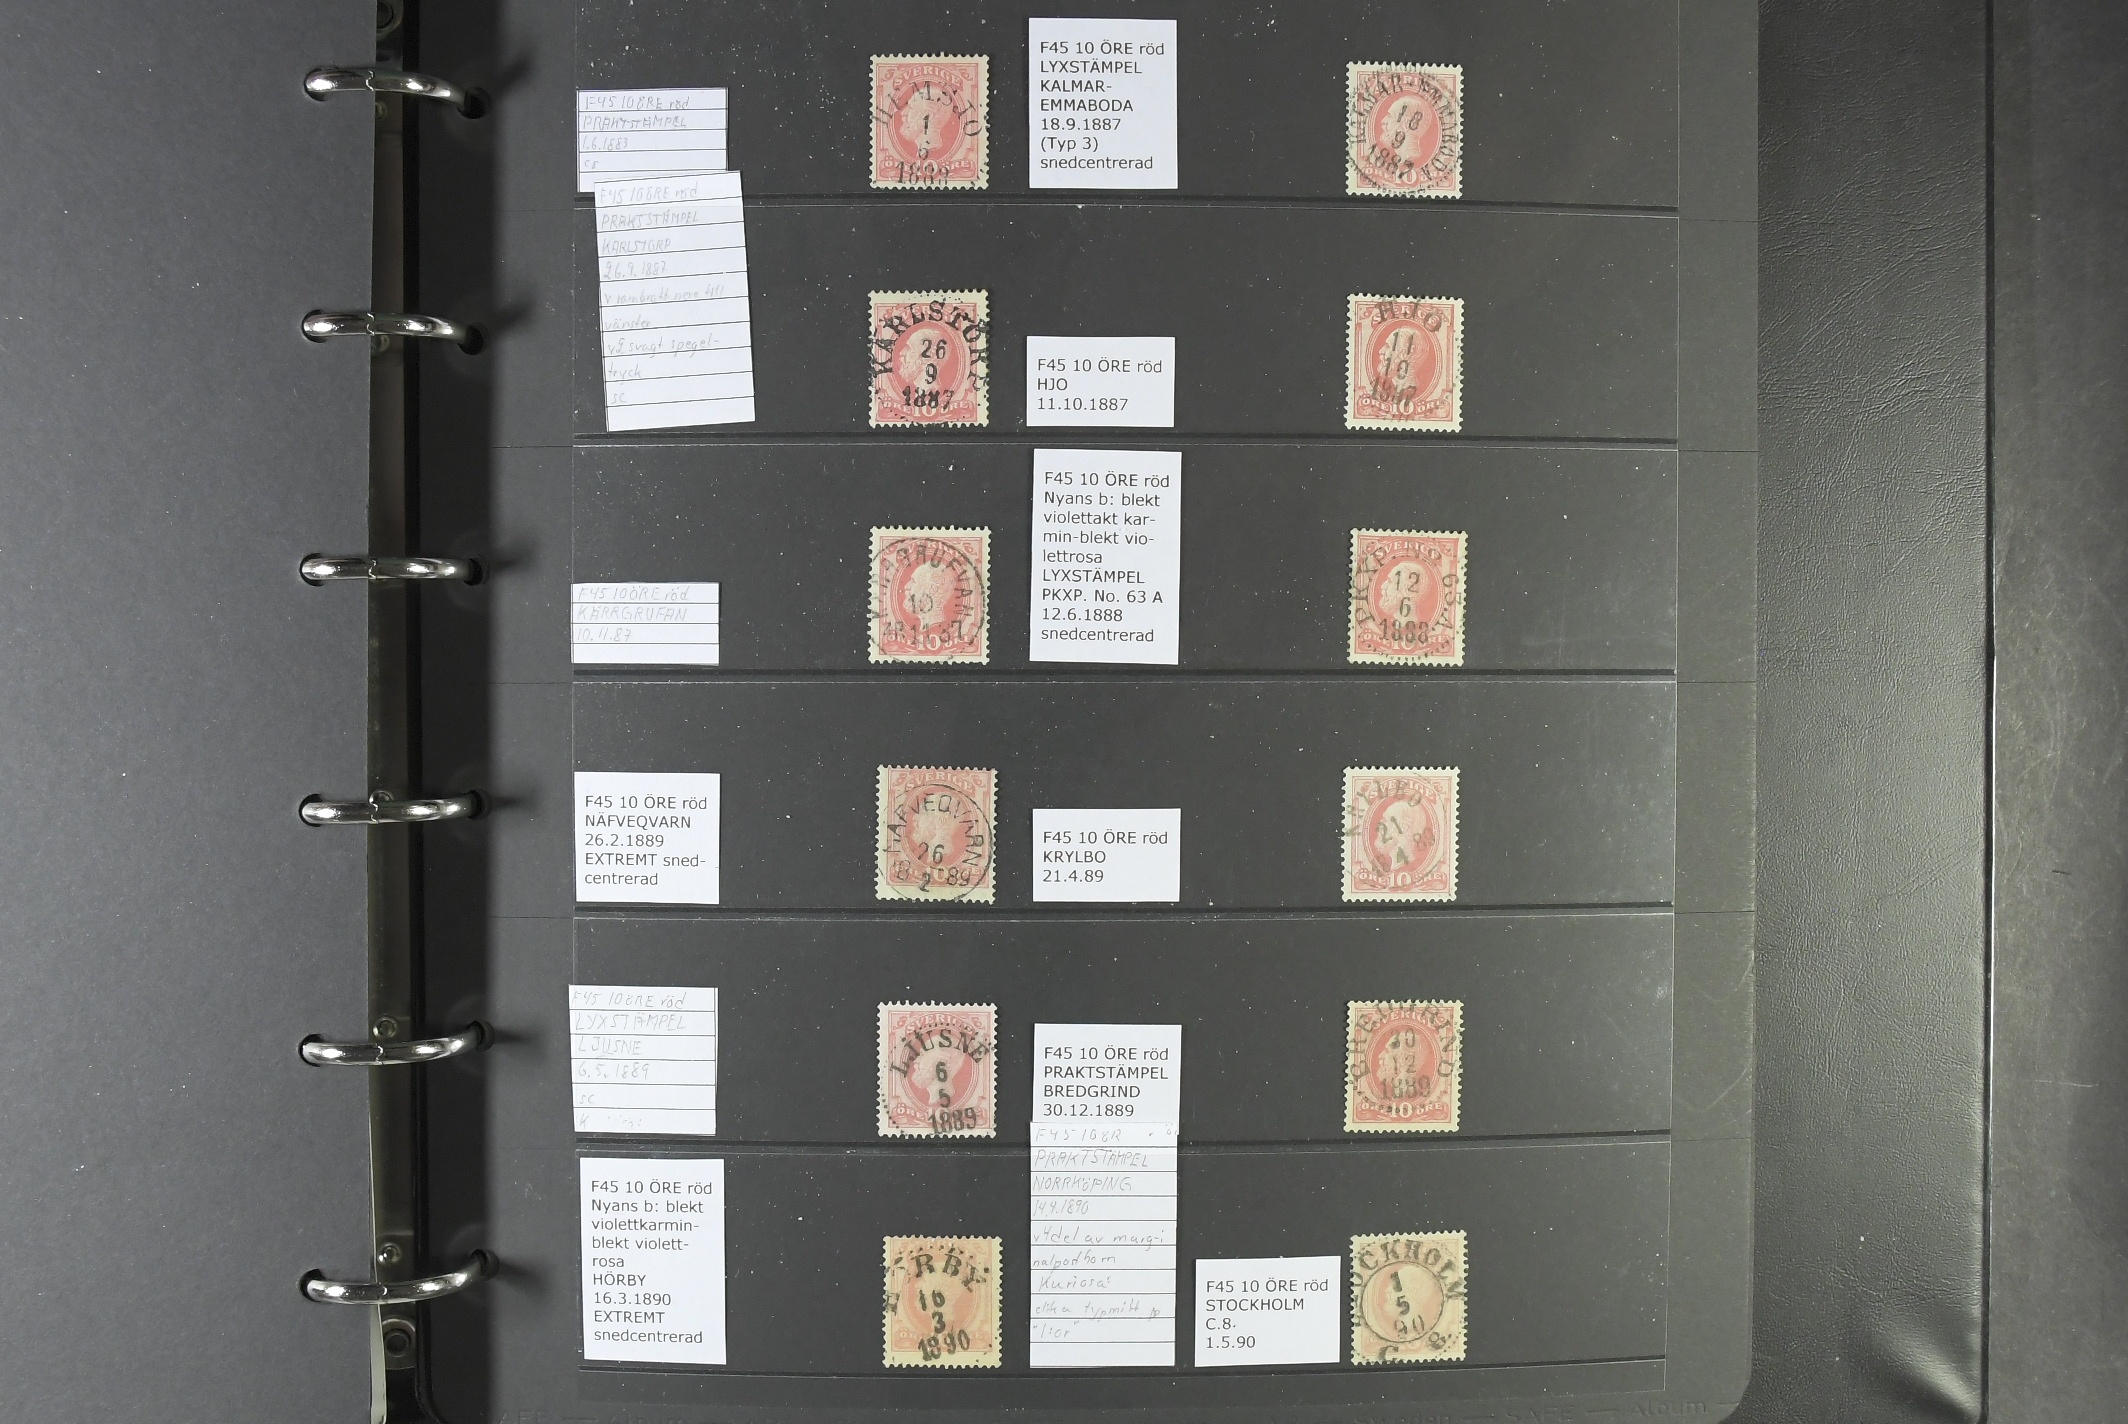 F45 10 ÖRE röd
PRAKTSTÄMPEL
1.6.1883
cs
HEMSJÖ
1
6
1883
F45 10 ÖRE röd
LYXSTÄMPEL
KALMAR-
EMMABODA
18.9.1887
(Typ 3)
snedcentrerad
KALMAR-EMMABODA
18
9
1887
F45 10 ÖRE röd
PRAKTSTÄMPEL
KARLSTORP
26.9.1887
vänster
v2 svagt spegel-
tryck
sc
KARLSTORP
26
9
1887
10
F45 10 ÖRE röd
HJO
11.10.1887
HJO
11
10
1887
ÖRE 10 ÖRE
F45 10 ÖRE röd
KÄRRGRUFAN
10.11.87
KÄRRGRUFVAN
10
F45 10 ÖRE röd
Nyans b: blekt
violettakt kar-
min-blekt vio-
lettrosa
LYXSTÄMPEL
PKXP. No. 63 A
12.6.1888
snedcentrerad
PKXP. No 63.A.
12
6
1888
F45 10 ÖRE röd
NÄFVEQVARN
26.2.1889
EXTREMT sned-
centrerad
SVERIGE
NÄFVEQVARN
26
2
F45 10 ÖRE röd
KRYLBO
21.4.89
SVERIGE
KRYLBO
21
4
ÖRE 10 ÖRE
F45 10 ÖRE röd
LYXSTÄMPEL
LJUSNE
6.5.1889
sc
SVERIGE
LJUSNE
6
5
1889
F45 10 ÖRE röd
PRAKTSTÄMPEL
BREDGRIND
30.12.1889
BREDGRIND
30
12
1889
10 ÖRE
F45 10 ÖRE röd
Nyans b: blekt
violettkarmin-
blekt violett-
rosa
HÖRBY
16.3.1890
EXTREMT
snedcentrerad
HÖRBY
16
3
1890
F45 10 ÖR
PRAKTSTÄMPEL
NORRKÖPING
14.4.1890
v4 del av margi
nalposthorn
Kuriosa:
olika typmitt på
F45 10 ÖRE röd
STOCKHOLM
C.8.
1.5.90
STOCKHOLM
1
5
90
C 8
SAFE — Album